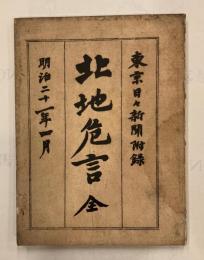 東京日々新聞附録
北地危言 全
明治二十一年一月